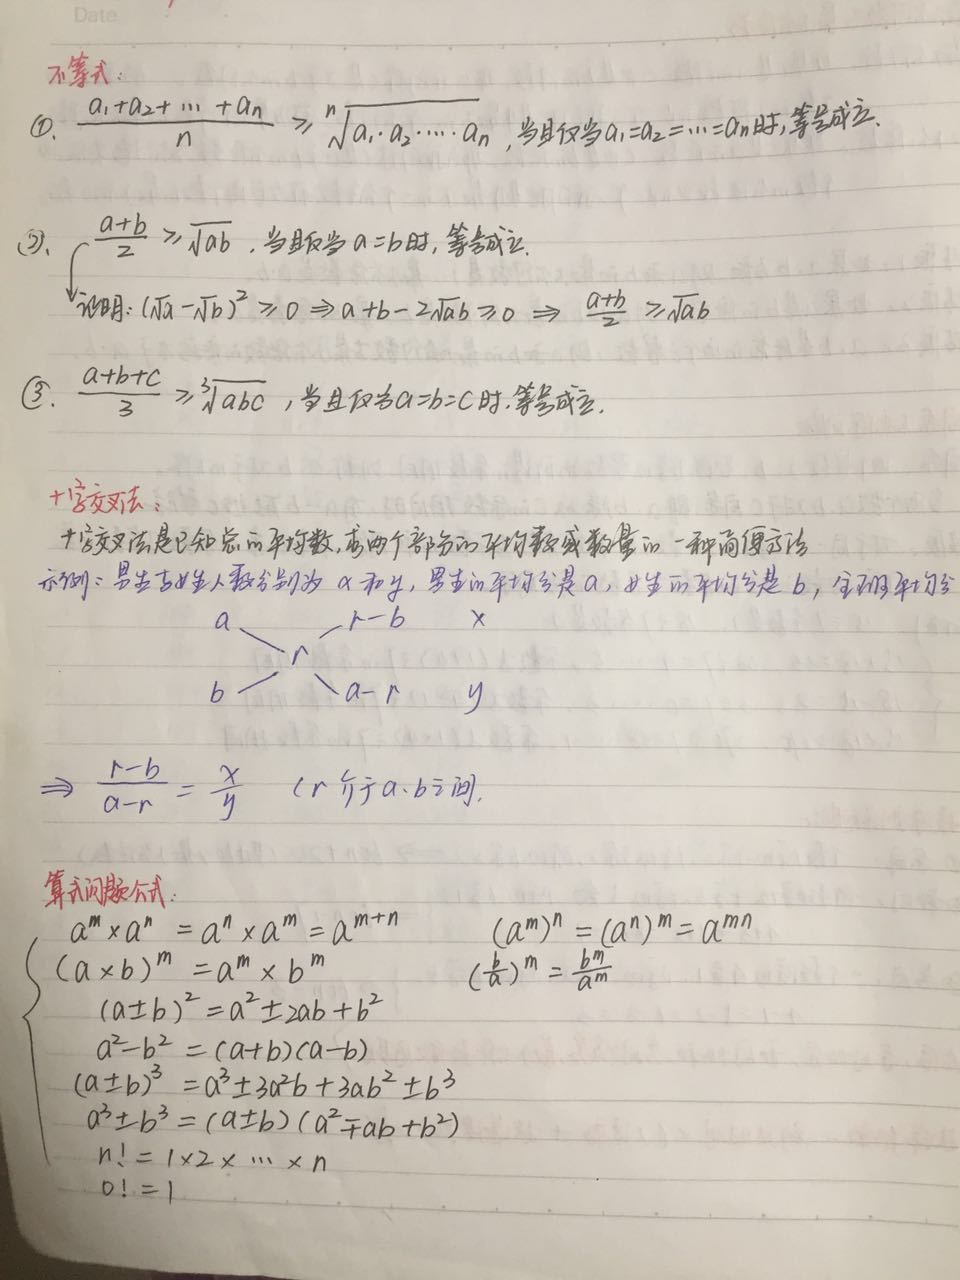 Date
不等式:
①. (a₁+a₂+…+aₙ)/n ≥ ⁿ√(a₁·a₂·…·aₙ), 当且仅当a₁=a₂=…=aₙ时, 等号成立.
②. (a+b)/2 ≥ √ab, 当且仅当 a=b时, 等号成立.
证明: (√a-√b)² ≥ 0 ⇒ a+b-2√ab ≥ 0 ⇒ (a+b)/2 ≥ √ab
③. (a+b+c)/3 ≥ ³√abc, 当且仅当a=b=c时, 等号成立.
十字交叉法:
十字交叉法是已知总的平均数, 求两个部分的平均数或数量的一种简便方法
示例: 男生与女生人数分别为 x 和 y, 男生的平均分是a, 女生的平均分是 b, 全班平均分
a r-b x
r
b a-r y
⇒ (r-b)/(a-r) = x/y (r 介于a、b之间.
算式问题公式:
aᵐ×aⁿ = aⁿ×aᵐ = aᵐ⁺ⁿ (aᵐ)ⁿ = (aⁿ)ᵐ = aᵐⁿ
(a×b)ᵐ = aᵐ×bᵐ (b/a)ᵐ = bᵐ/aᵐ
(a±b)² = a²±2ab+b²
a²-b² = (a+b)(a-b)
(a±b)³ = a³±3a²b+3ab²±b³
a³±b³ = (a±b)(a²∓ab+b²)
n! = 1×2×…×n
0! = 1